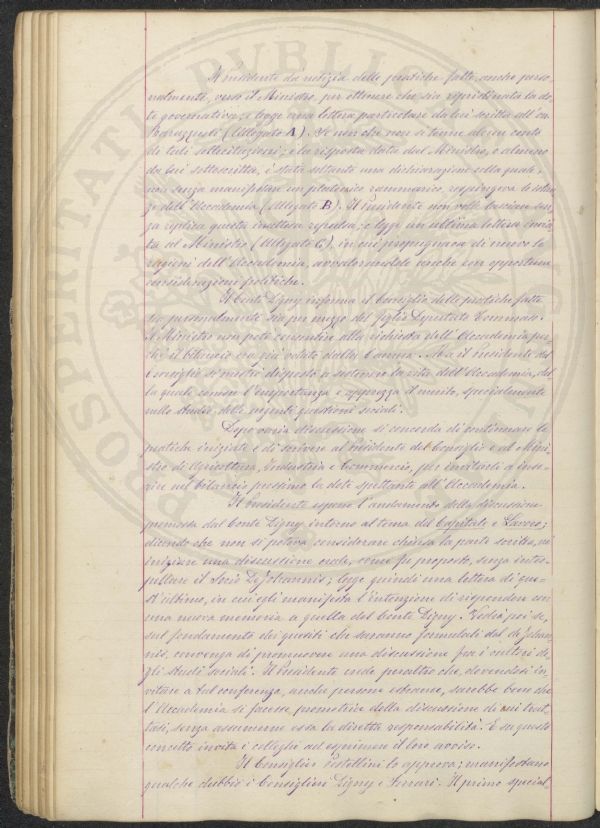 Il Presidente dà notizia delle pratiche fatte, anche perso-
nalmente, verso il Ministro, per ottenere che sia ripristinata la do-
te governativa; e legge una lettera particolare da lui scritta all'on.
Barazzuoli (Allegato A). Se non che non si tenne alcun conto
di tali sollecitazioni; e la risposta data dal Ministro, o almeno
da lui sottoscritta, è stata soltanto una dichiarazione colla quale,
non senza manifestare un platonico rammarico, respingeva le istan-
ze dell'Accademia (Allegato B). Il Presidente non volle lasciare sen-
za replica questa repulsa; e legge un'ultima lettera invia-
ta al Ministro (Allegato C), in cui propugnava di nuovo le
ragioni dell'Accademia, avvalorandole anche con opportune
considerazioni politiche.
Il Conte Digny informa il Consiglio delle pratiche fatte
personalmente sia per mezzo del figlio Deputato Tommaso.
Il Ministro non potè consentire alla richiesta dell'Accademia per-
chè il bilancio era già votato dalla Camera. Ma il Presidente del
Consiglio si mostrò disposto a sostenere la vita dell'Accademia, del-
la quale conosce l'importanza e apprezza il merito, specialmente
nello studio delle urgenti questioni sociali.
Dopo varia discussione si concorda di continuare le
pratiche iniziate e di scrivere al Presidente del Consiglio e al Mini-
stro di Agricoltura, Industria e Commercio, per invitarli a inse-
rire nel bilancio prossimo la dote spettante all'Accademia.
Il Presidente espone l'andamento della discussione
promossa dal Conte Digny intorno al tema del Capitale e Lavoro;
dicendo che non si poteva considerare chiusa la parte scritta, nè
iniziare una discussione orale, come fu proposto, senza inter-
pellare il Socio De Johannis; legge quindi una lettera di que-
st'ultimo, in cui egli manifesta l'intenzione di rispondere con
una nuova memoria a quella del Conte Digny. Vedrà poi se,
sul fondamento dei quesiti che saranno formulati dal De Johan-
nis, convenga di promuovere una discussione fra i cultori de-
gli studi sociali. Il Presidente crede peraltro che, dovendosi in-
vitare a tal conferenza, anche persone estranee, sarebbe bene che
l'Accademia si facesse promotrice della discussione di cui trat-
tasi, senza assumerne essa la diretta responsabilità. E su questo
concetto invita i colleghi ad esprimere il loro avviso.
Il Consiglier Pestellini lo approva; manifestano
qualche dubbio i Consiglieri Digny e Ferrari. Il primo special-